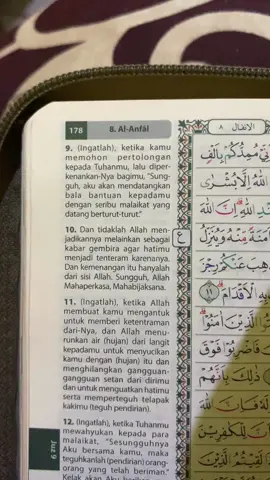 178
8. Al-Anfāl
الانفال ٨
9. (Ingatlah), ketika kamu
memohon pertolongan
kepada Tuhanmu, lalu diper-
kenankan-Nya bagimu, "Sung-
guh, aku akan mendatangkan
bala bantuan kepadamu
dengan seribu malaikat yang
datang berturut-turut."
10. Dan tidaklah Allah men-
jadikannya melainkan sebagai
kabar gembira agar hatimu
menjadi tenteram karenanya.
Dan kemenangan itu hanyalah
dari sisi Allah. Sungguh, Allah
Mahaperkasa, Mahabijaksana.
11. (Ingatlah), ketika Allah
membuat kamu mengantuk
untuk memberi ketentraman
dari-Nya, dan Allah menu-
runkan air (hujan) dari langit
kepadamu untuk menyucikan
kamu dengan (hujan) itu dan
menghilangkan gangguan-
gangguan setan dari dirimu
dan untuk menguatkan hatimu
serta memperteguh telapak
kakimu (teguh pendirian).
12. (Ingatlah), ketika Tuhanmu
mewahyukan kepada para
malaikat, "Sesungguhnya
Aku bersama kamu, maka
teguhkanlah (pendirian) orang-
orang yang telah beriman."
Kelak akan Aku
Juz 9
مُمِدُّكُمْ بِاَلْفٍ
اللّٰهُ اِلَّا بُشْرٰى
اِنَّ اللّٰهَ
اَمَنَةً مِّنْهُ وَيُنَزِّلُ
عَنْكُمْ رِجْزَ
بِهِ الْاَقْدَامَ ۝١١
الَّذِيْنَ اٰمَنُوْا
فَاضْرِبُوْا فَوْقَ
ذٰلِكَ بِاَنَّهُمْ
فَاِنَّ اللّٰهَ
لِلْكٰفِرِيْنَ
لَقِيْتُمُ الَّذِيْنَ